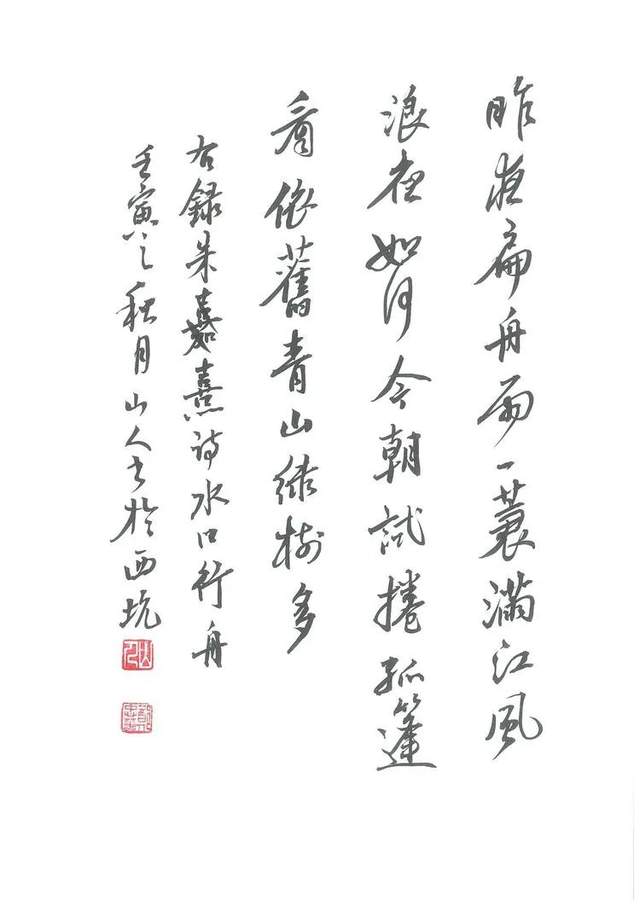 昨夜扁舟雨一蓑滿江風
浪夜如何今朝試捲孤篷
看依舊青山绿树多
右録朱嘉熹诗水口行舟
壬寅之秋月山人书於西坑